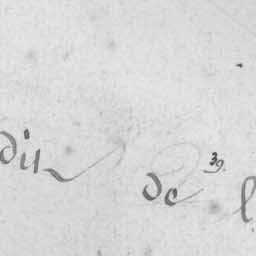 dit de 39.